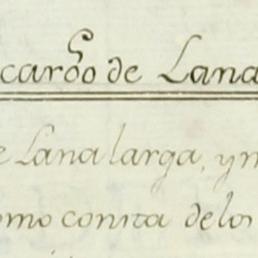 cargo de Lana
e Lana larga, y m
omo consta de los